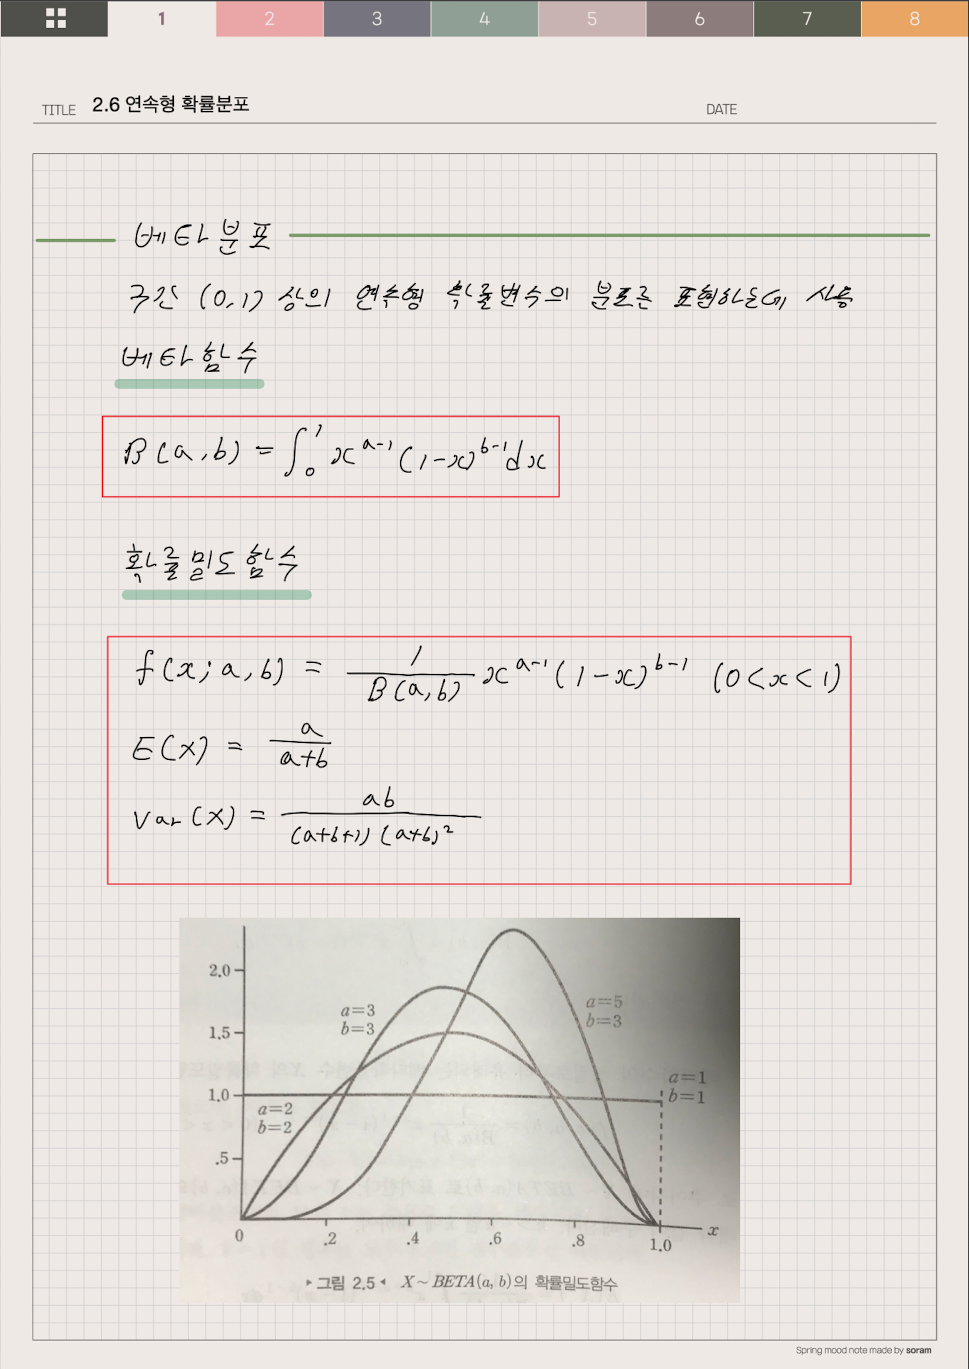 1 2 3 4 5 6 7 8
TITLE 2.6 연속형 확률분포 DATE
베타분포
구간 (0,1) 상의 연속형 확률변수의 분포를 표현하는데 사용
베타함수
B(a,b) = ∫₀¹ x^{a-1} (1-x)^{b-1} dx
확률밀도함수
f(x; a, b) = 1/B(a,b) x^{a-1} (1-x)^{b-1} (0<x<1)
E(X) = a/(a+b)
Var(X) = ab/((a+b+1)(a+b)²)
2.0
a=3
b=3
a=5
b=3
1.5
a=1
b=1
1.0
a=2
b=2
.5
0 .2 .4 .6 .8 1.0 x
▸그림 2.5◂ X~BETA(a, b)의 확률밀도함수
Spring mood note made by soram